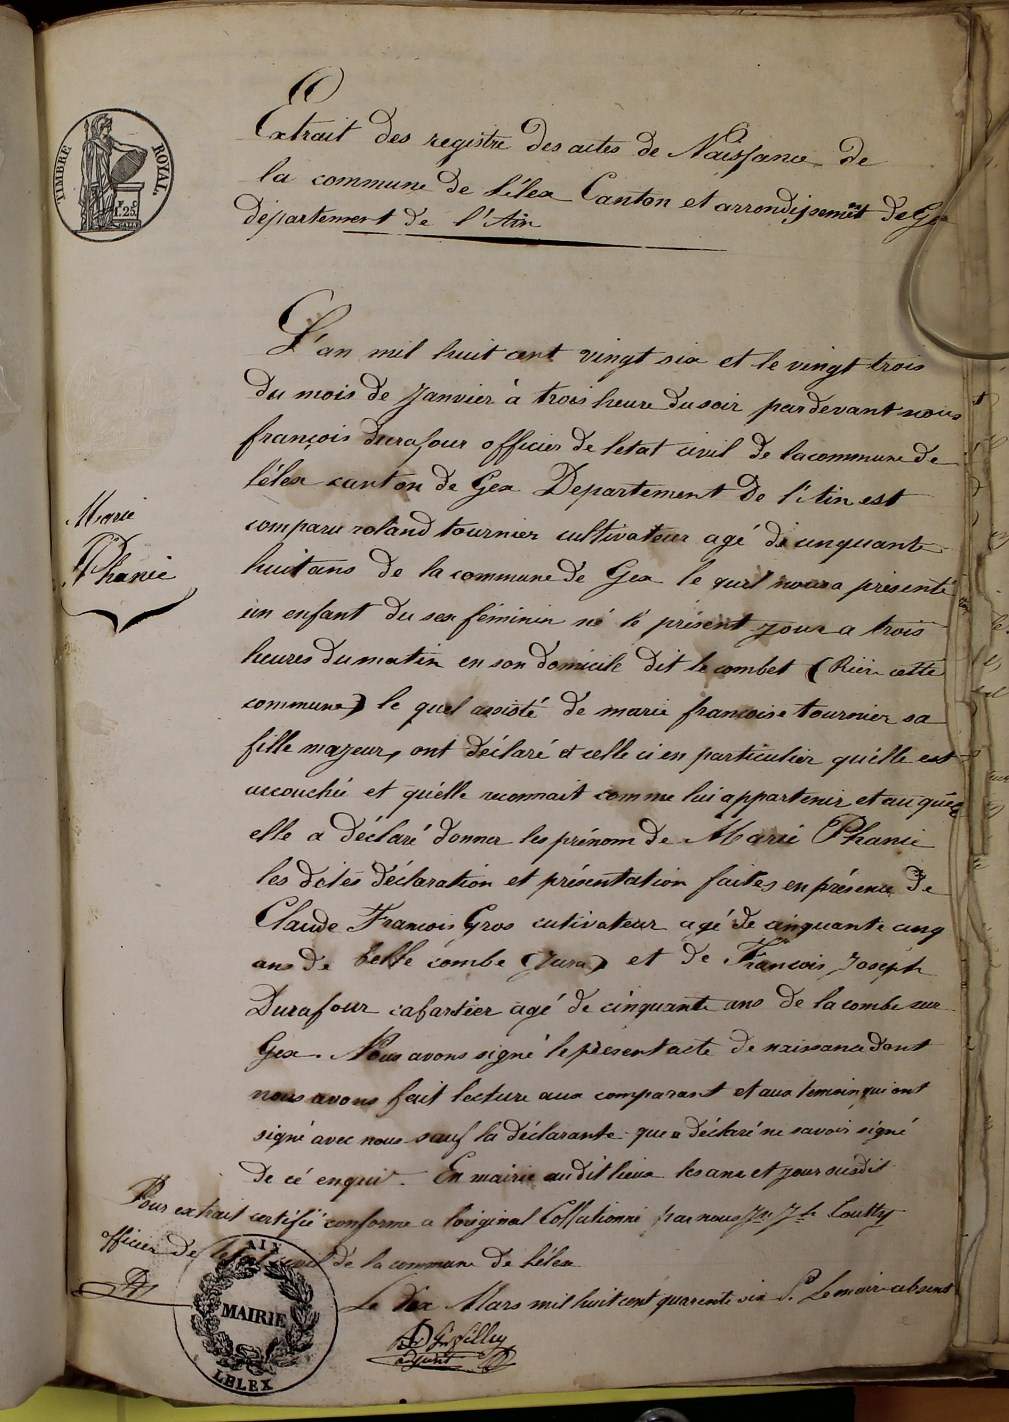 TIMBRE ROYAL.
1.25
Extrait des registre des actes de Naissance de
la commune de Lélex Canton et arrondissement de Gex
département de l'Ain
L'an mil huit cent vingt six et le vingt trois
du mois de Janvier à trois heure du soir pardevant nous
françois durafour officier de letat civil de la commune de
Lélex canton de Gex Departement de l'Ain est
comparu roland tournier cultivateur agé de cinquante
huit ans de la commune de Gex le quel nous a présenté
Marie
Phanie
un enfant du sex féminin né le présent jour a trois
heures du matin en son domicile dit le combet (Rière cette
commune) le quel assisté de marie francoise tournier sa
fille majeur, ont déclaré et celle ci en particulier qu'elle est
accouchée et qu'elle reconnait comme lui appartenir et auquel
elle a déclaré donner les prénom de Marie Phanie
les dites déclaration et présentation faites en présence de
Claude Francois Gros cutivateur agé de cinquante cinq
ans de belle combe (Jura) et de Francois Joseph
Durafour cabartier agé de cinquante ans de la combe sur
Gex. Nous avons signé le présent acte de naissance dont
nous avons fait lecture aux comparant et aux temoin qui ont
signé avec nous sauf la déclarante que a déclaré ne savoir signé
de cé enquit. En mairie audit lieux les ans et jour susdit
Pour extrait certifié conforme a l'original Collationné par nous
officier de letat civil de la commune de Lélex
Le dix Mars mil huit cent quarente six P. Le maire absent
adjoint
AIX
MAIRIE
LELEX